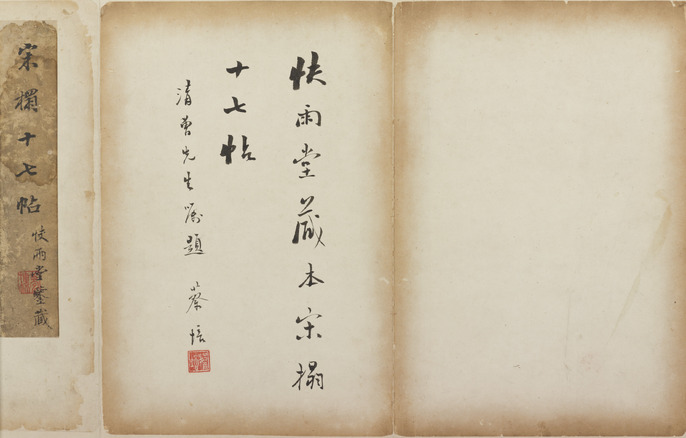 快雨堂藏本宋搨
十七帖
清曹先生嘱題 蔡培
宋 十七帖
快雨堂鑒藏